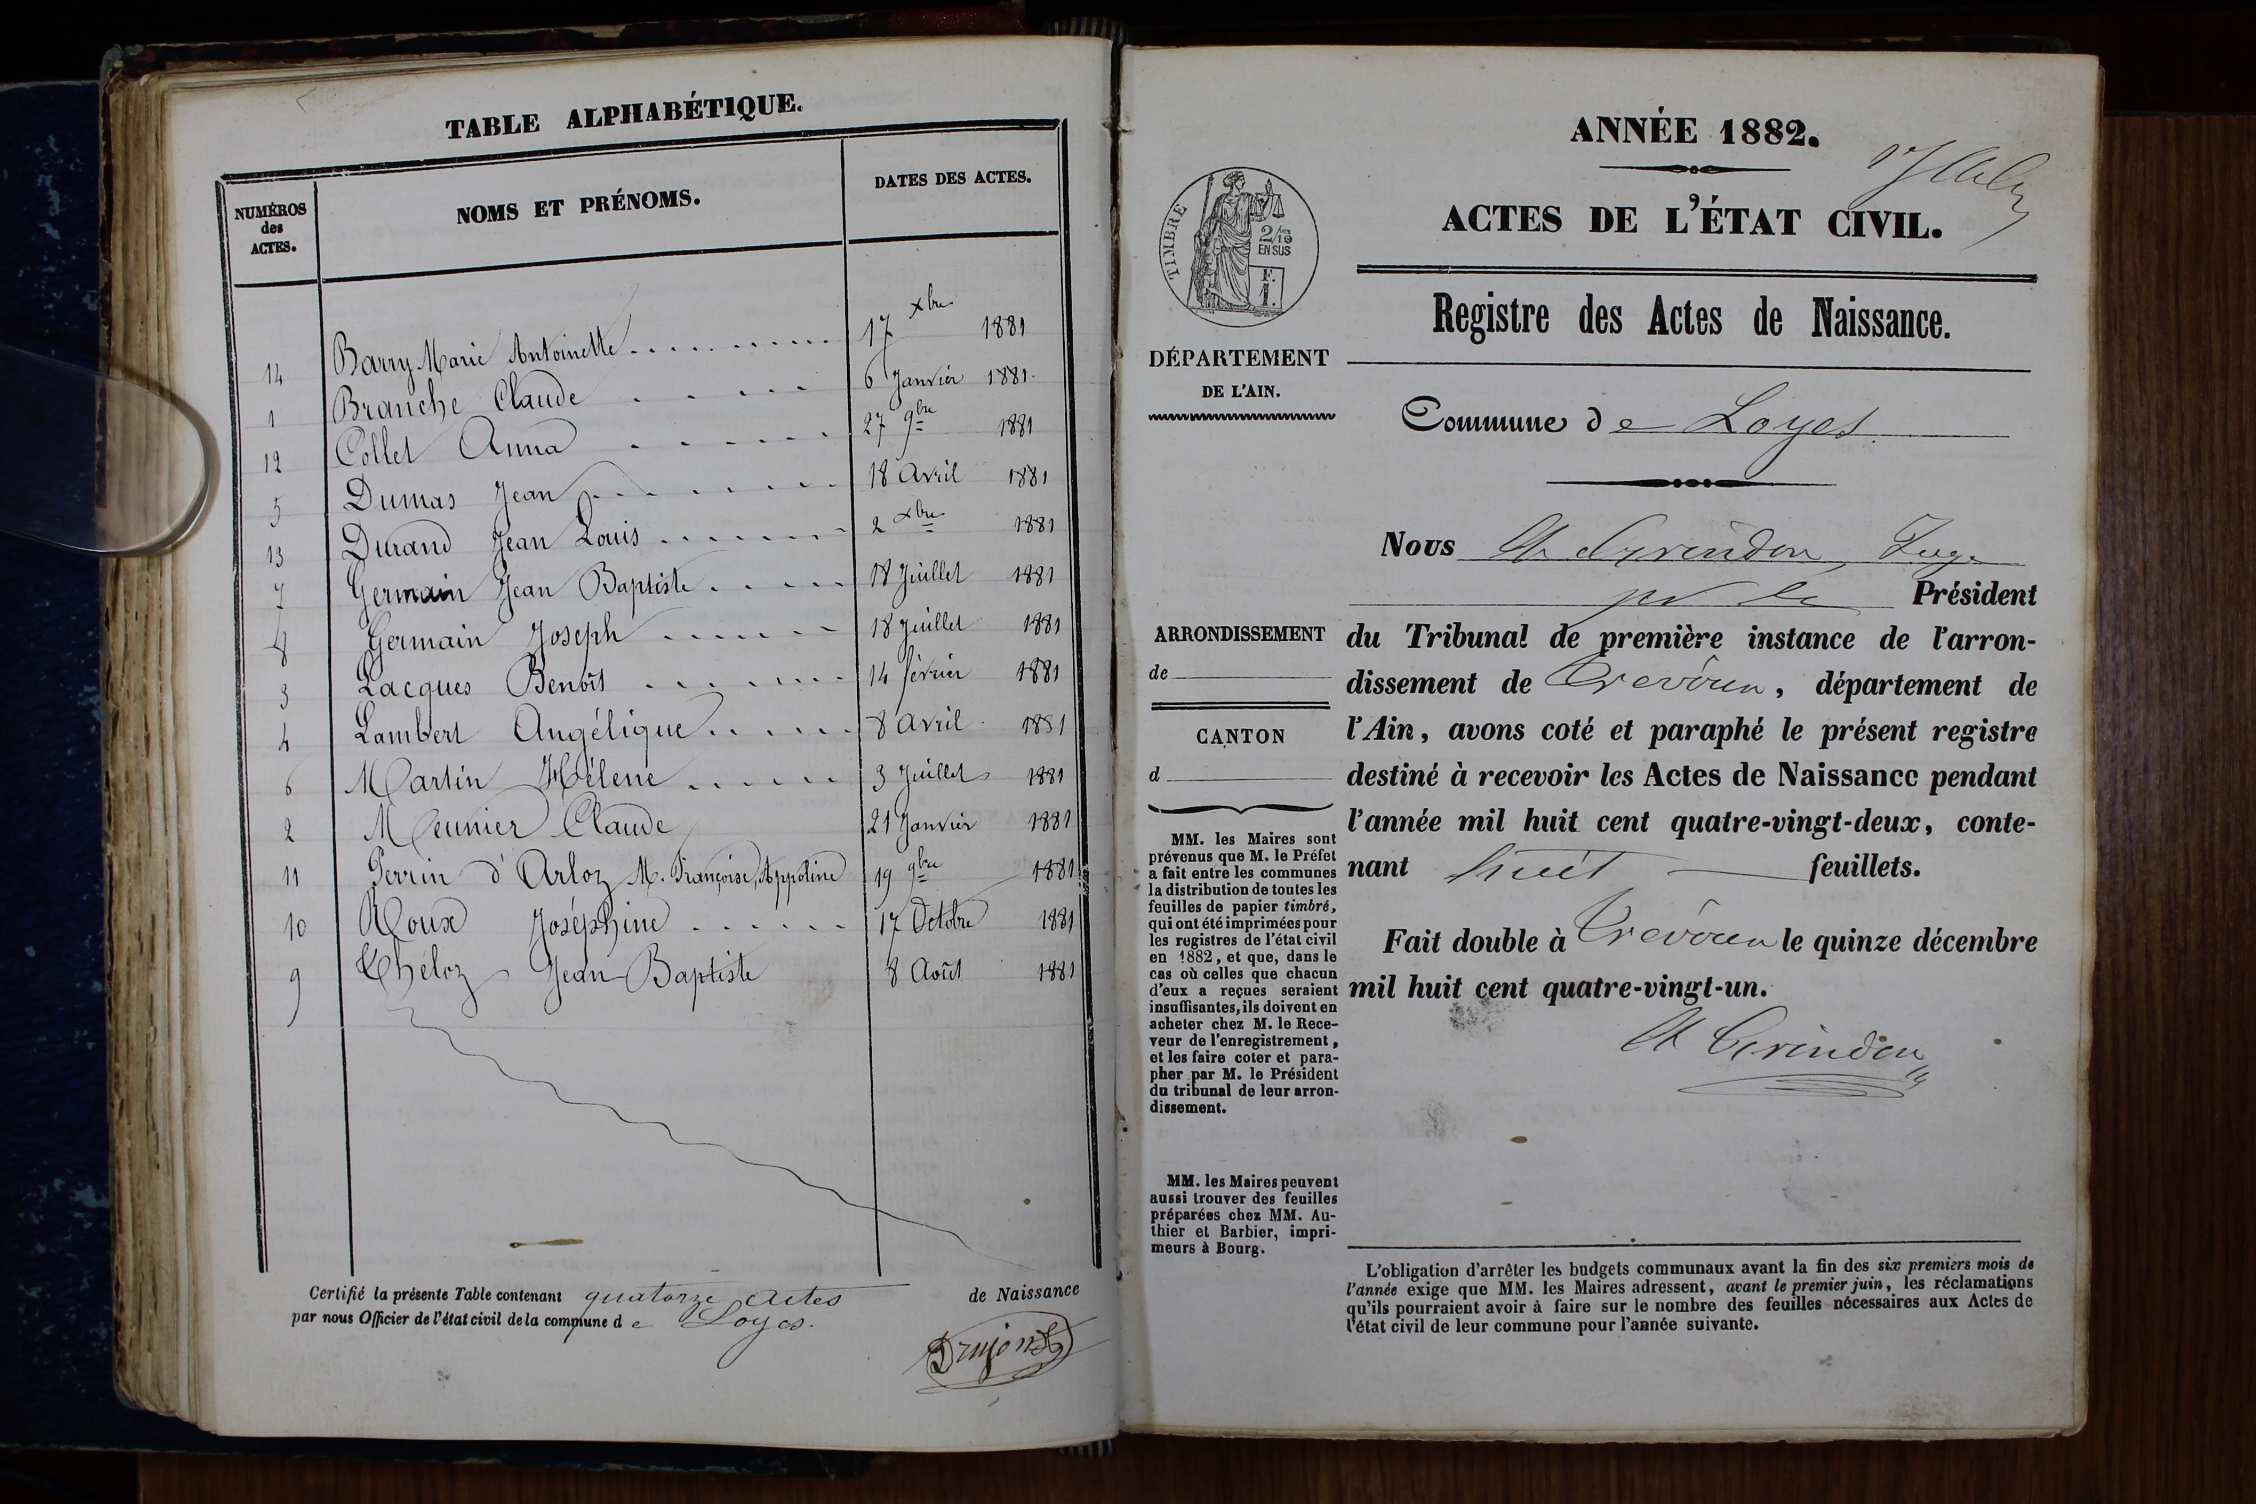 TABLE ALPHABÉTIQUE.
NUMÉROS des ACTES. NOMS ET PRÉNOMS. DATES DES ACTES.
14 Barry Marie Antoinette 17 xbre 1881
1 Branche Claude 6 Janvier 1881
12 Collet Anna 27 9bre 1881
5 Dumas Jean 18 Avril 1881
13 Durand Jean Louis 2 xbre 1881
7 Germain Jean Baptiste 18 Juillet 1881
8 Germain Joseph 18 Juillet 1881
3 Lacques Benoît 14 février 1881
4 Lambert Angélique 8 Avril 1881
6 Martin Hélene 3 Juillet 1881
2 Meunier Claude 21 Janvier 1881
11 Perrin d'Arloz M. Françoise, Appoline 19 9bre 1881
10 Roux Joséphine 17 Octobre 1881
9 Théloz Jean Baptiste 8 Août 1881
Certifié la présente Table contenant quatorze actes de Naissance
par nous Officier de l'état civil de la commune de Loyes.
Drujon
ANNÉE 1882.
ACTES DE L'ÉTAT CIVIL.
Registre des Actes de Naissance.
TIMBRE
2/10
EN SUS
F.
1.
DÉPARTEMENT
DE L'AIN.
Commune de Loyes
Nous Grindon, Juge
pr le Président
du Tribunal de première instance de l'arron-
dissement de Trévoux, département de
l'Ain, avons coté et paraphé le présent registre
destiné à recevoir les Actes de Naissance pendant
l'année mil huit cent quatre-vingt-deux, conte-
nant huit feuillets.
Fait double à Trévoux le quinze décembre
mil huit cent quatre-vingt-un.
Grindon
ARRONDISSEMENT
de
CANTON
d
MM. les Maires sont
prévenus que M. le Préfet
a fait entre les communes
la distribution de toutes les
feuilles de papier timbré,
qui ont été imprimées pour
les registres de l'état civil
en 1882, et que, dans le
cas où celles que chacun
d'eux a reçues seraient
insuffisantes, ils doivent en
acheter chez M. le Rece-
veur de l'enregistrement,
et les faire coter et para-
pher par M. le Président
du tribunal de leur arron-
dissement.
MM. les Maires peuvent
aussi trouver des feuilles
préparées chez MM. Au-
thier et Barbier, impri-
meurs à Bourg.
L'obligation d'arrêter les budgets communaux avant la fin des six premiers mois de
l'année exige que MM. les Maires adressent, avant le premier juin, les réclamations
qu'ils pourraient avoir à faire sur le nombre des feuilles nécessaires aux Actes de
l'état civil de leur commune pour l'année suivante.